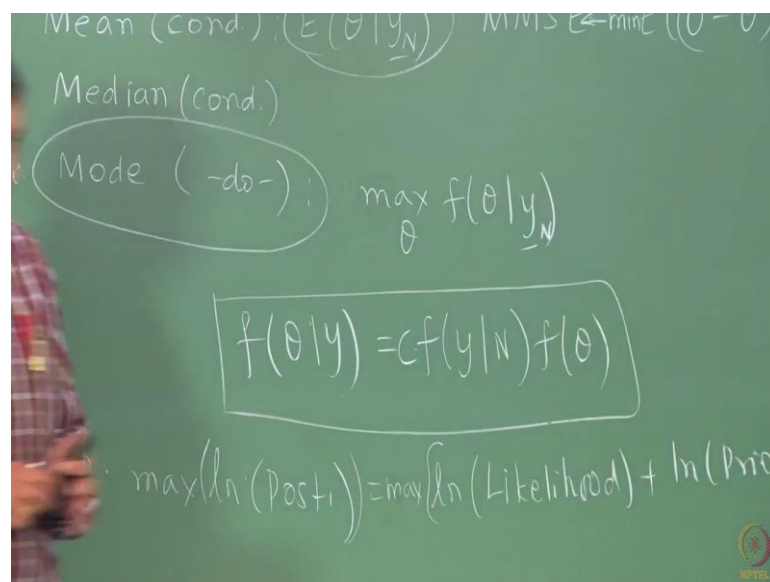 Mean (cond.) : E(θ|y_N) MMSE ← min E((θ - θ̂)
Median (cond.)
Mode (-do-) : max_θ f(θ|y_N)
f(θ|y) = C f(y|N) f(θ)
max(ln(Post.)) = max(ln(Likelihood) + ln(Prio
NPTEL